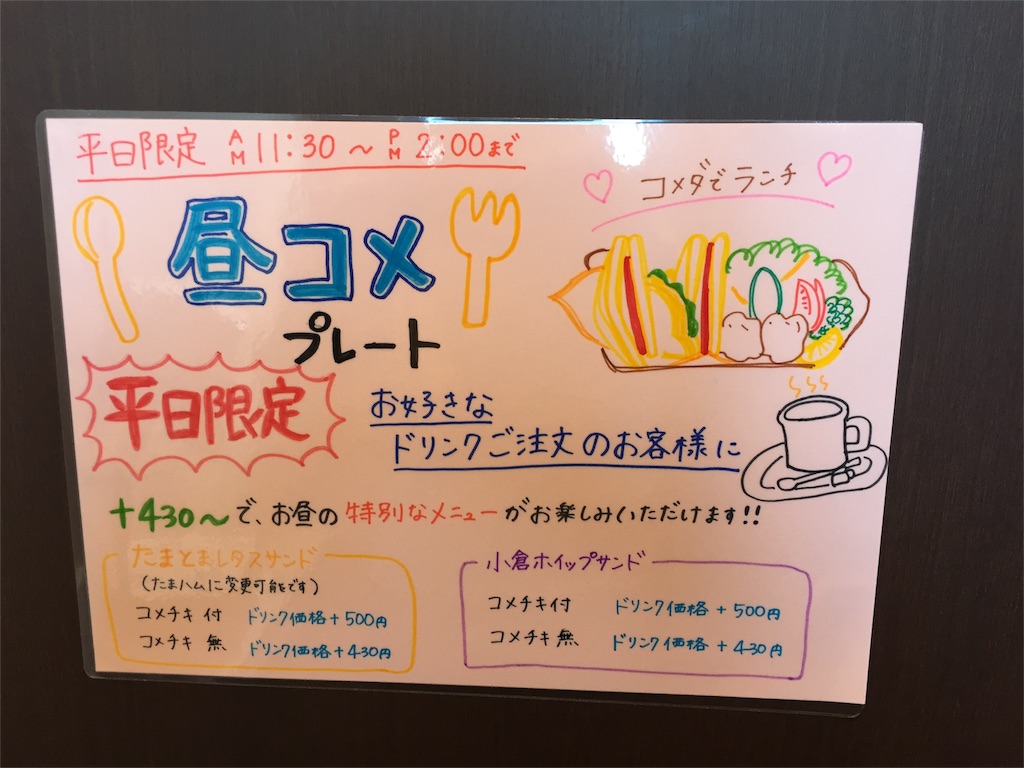 平日限定 AM11:30 ~ PM2:00まで
コメダでランチ
昼コメ
プレート
平日限定
お好きな
ドリンクご注文のお客様に
+430~で、お昼の特別なメニューがお楽しみいただけます!!
たまとまレタスサンド
(たまハムに変更可能です)
コメチキ付 ドリンク価格+500円
コメチキ無 ドリンク価格+430円
小倉ホイップサンド
コメチキ付 ドリンク価格+500円
コメチキ無 ドリンク価格+430円